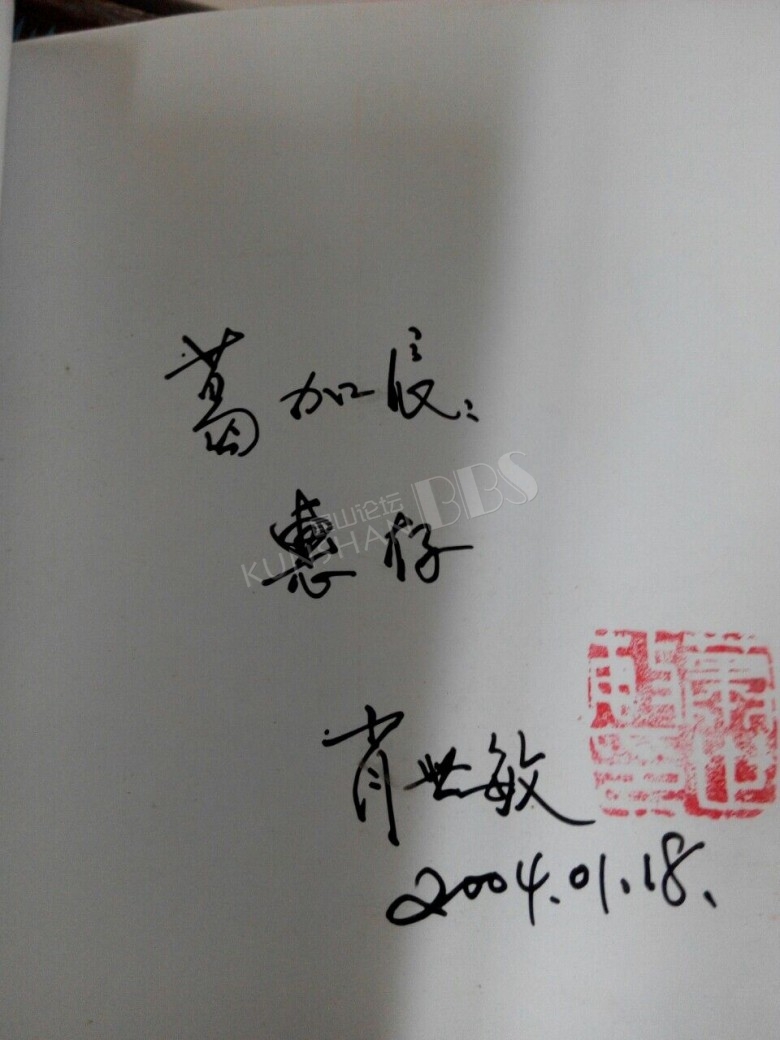 葛加辰:
惠存
昆山论坛 BBS
KUNSHAN
肖世敏
2004.01.18.